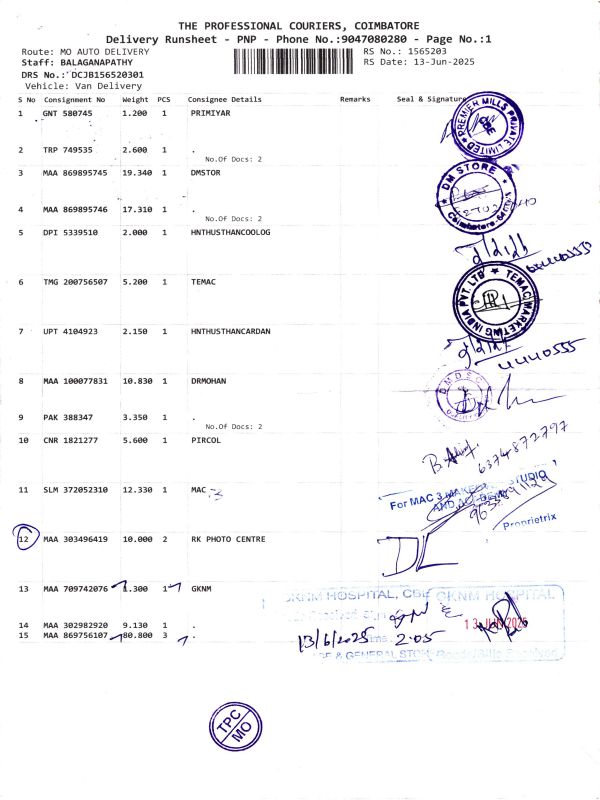 THE PROFESSIONAL COURIERS, COIMBATORE
Delivery Runsheet - PNP - Phone No.:9047080280 - Page No.:1
Route: MO AUTO DELIVERY
RS No.: 1565203
Staff: BALAGANAPATHY
RS Date: 13-Jun-2025
DRS No.: DCJB156520301
Vehicle: Van Delivery
S No Consignment No Weight PCS Consignee Details Remarks Seal & Signature
1 GNT 580745 1.200 1 PRIMIYAR
PREMIER MILLS PRIVATE LIMITED
CBE
2 TRP 749535 2.600 1 .
No.Of Docs: 2
3 MAA 869895745 19.340 1 DMSTOR
DM STORE
4 MAA 869895746 17.310 1 .
No.Of Docs: 2
5 DPI 5339510 2.000 1 HNTHUSTHANCOOLOG
6 TMG 200756507 5.200 1 TEMAC
TEMAC MARKETING INDIA PVT. LTD
7 UPT 4104923 2.150 1 HNTHUSTHANCARDAN
4440555
8 MAA 100077831 10.830 1 DRMOHAN
DMDSC
9 PAK 388347 3.350 1 .
No.Of Docs: 2
10 CNR 1821277 5.600 1 PIRCOL
6374872797
11 SLM 372052310 12.330 1 MAC 3
For MAC 3 MAKEOVER STUDIO
Proprietrix
12 MAA 303496419 10.000 2 RK PHOTO CENTRE
DL
13 MAA 709742076 1.300 1 GKNM
GKNM HOSPITAL, CBE
GKNM HOSPITAL
14 MAA 302982920 9.130 1 .
13 JUN 2025
15 MAA 869756107 80.800 3 .
13/6/2025 Time 2.05
& GENERAL STORE
Goods/Bills Received
TPC
MO